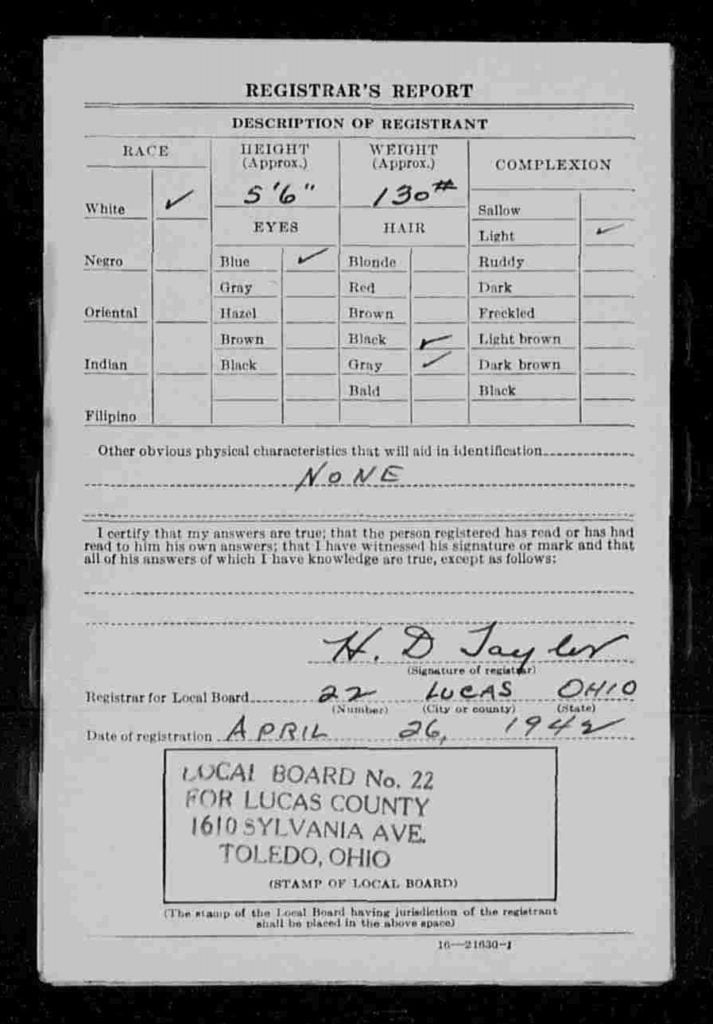 REGISTRAR'S REPORT
DESCRIPTION OF REGISTRANT
RACE
HEIGHT (Approx.)
WEIGHT (Approx.)
COMPLEXION
5'6"
130#
White ✓
Sallow
EYES
HAIR
Light ✓
Negro
Blue ✓
Blonde
Ruddy
Gray
Red
Dark
Oriental
Hazel
Brown
Freckled
Brown
Black ✓
Light brown
Indian
Black
Gray ✓
Dark brown
Bald
Black
Filipino
Other obvious physical characteristics that will aid in identification
NONE
I certify that my answers are true; that the person registered has read or has had
read to him his own answers; that I have witnessed his signature or mark and that
all of his answers of which I have knowledge are true, except as follows:
H. D Taylor
(Signature of registrar)
Registrar for Local Board 22 LUCAS OHIO
(Number) (City or county) (State)
Date of registration APRIL 26, 1942
LOCAL BOARD No. 22
FOR LUCAS COUNTY
1610 SYLVANIA AVE.
TOLEDO, OHIO
(STAMP OF LOCAL BOARD)
(The stamp of the Local Board having jurisdiction of the registrant
shall be placed in the above space)
16—21630-1